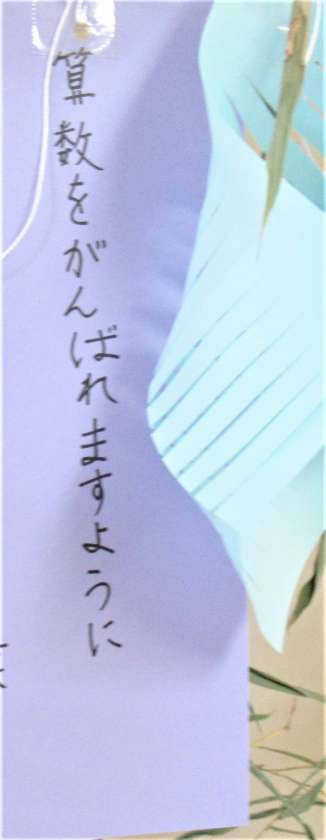 算数をがんばれますように